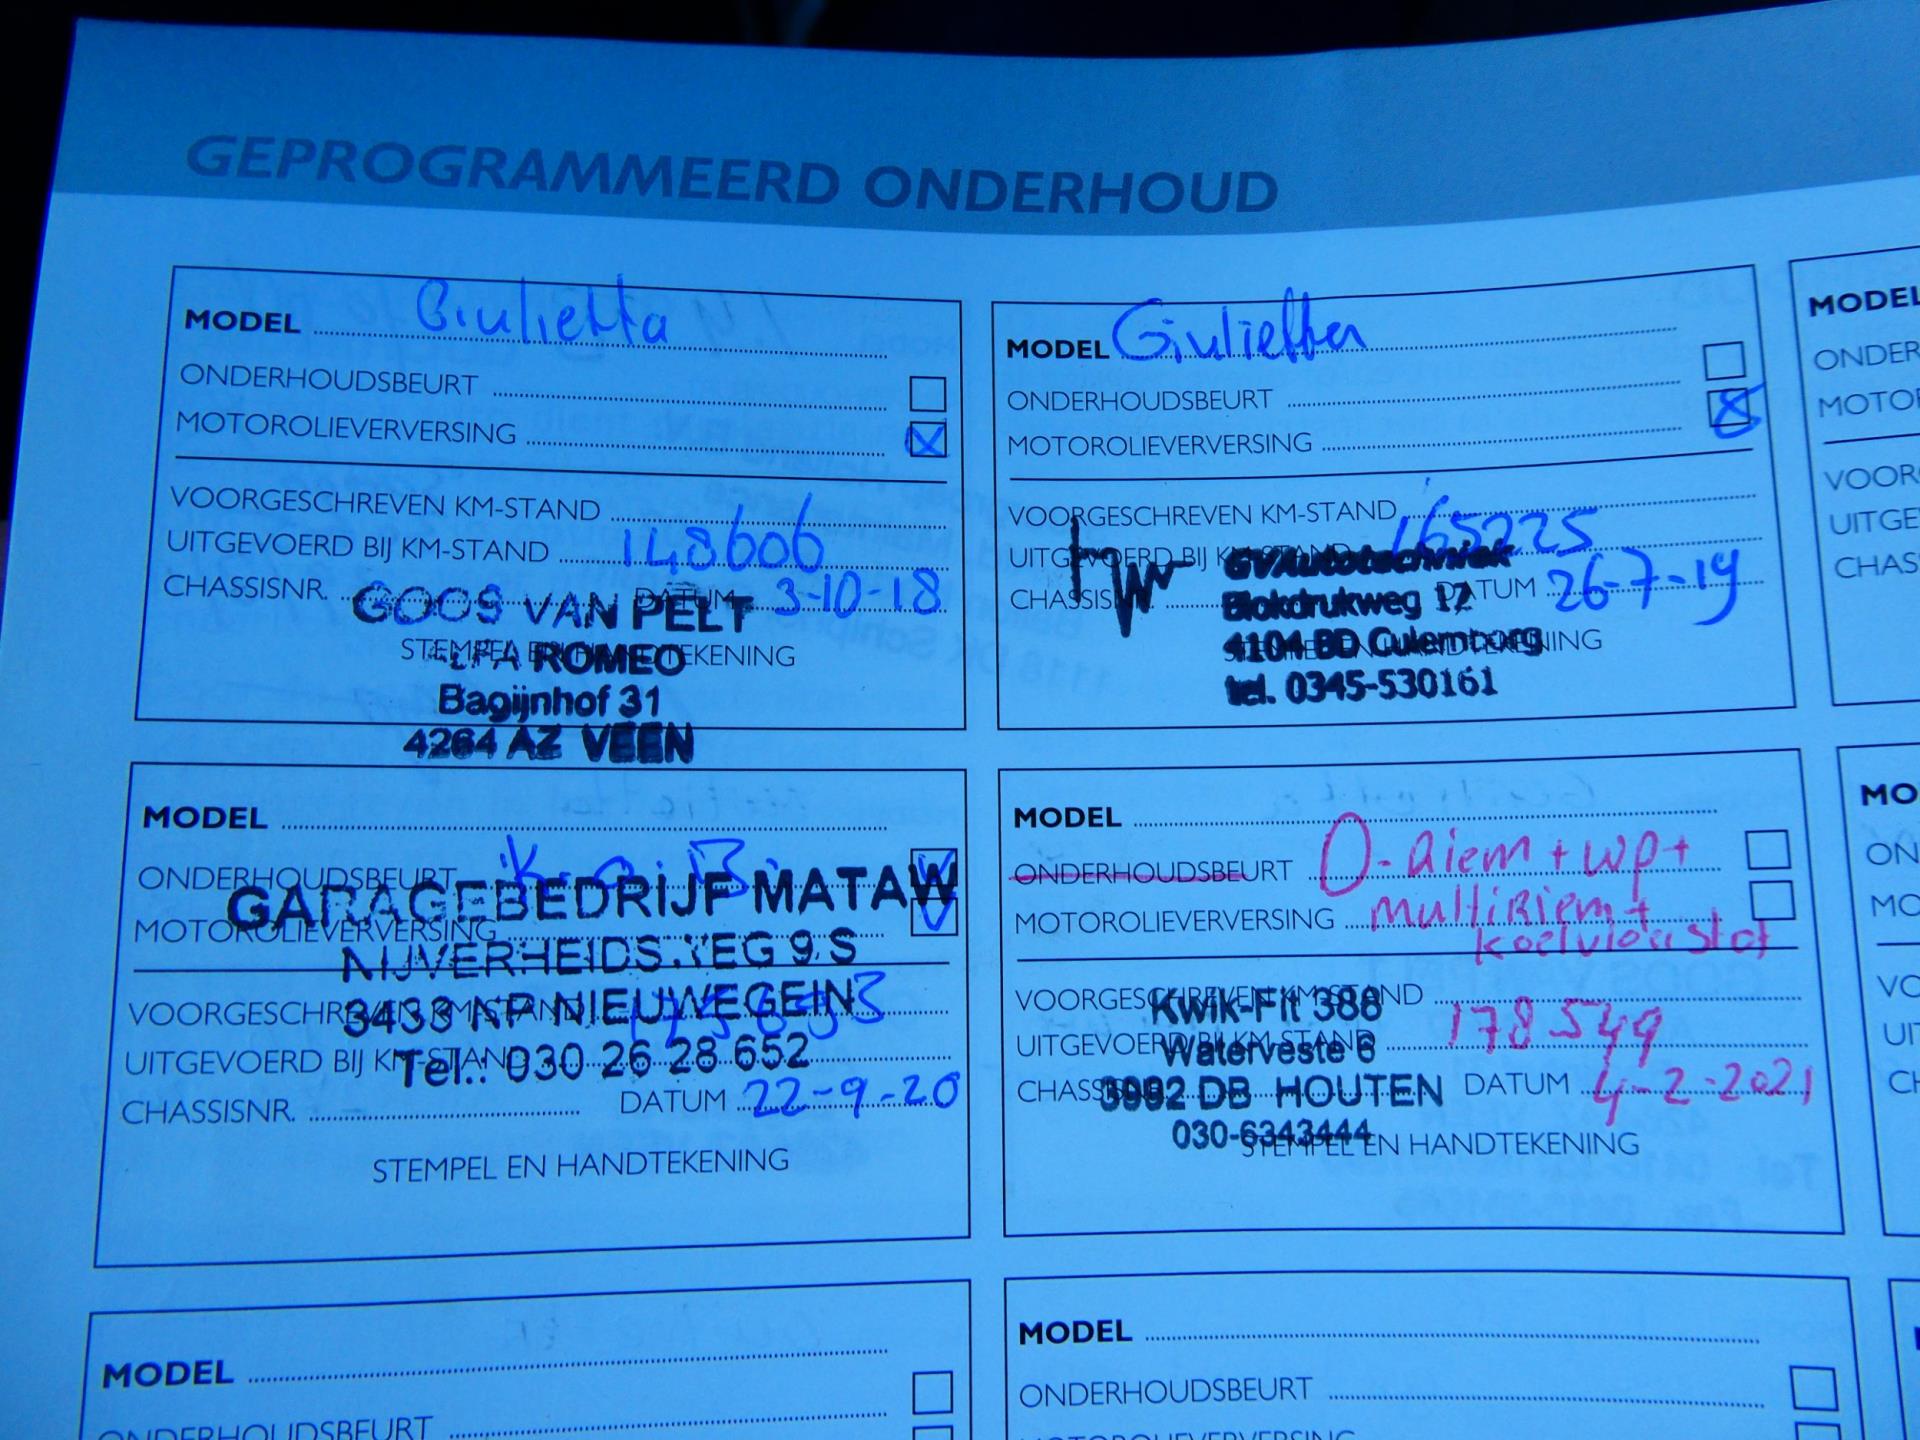 GEPROGRAMMEERD ONDERHOUD
MODEL Giulietta
ONDERHOUDSBEURT
MOTOROLIEVERVERSING
VOORGESCHREVEN KM-STAND
UITGEVOERD BIJ KM-STAND 148606
CHASSISNR. DATUM 3-10-18
GOOS VAN PELT
STEMPEL EN HANDTEKENING
ALFA ROMEO
Bagijnhof 31
4264 AZ VEEN
MODEL Giulietta
ONDERHOUDSBEURT
MOTOROLIEVERVERSING
VOORGESCHREVEN KM-STAND
UITGEVOERD BIJ KM-STAND 165225
GVAutotechniek
CHASSISNR. DATUM 26-7-19
Blokdrukweg 12
4104 BD Culemborg
STEMPEL EN HANDTEKENING
tel. 0345-530161
MODEL
ONDER
MOTOR
VOOR
UITGE
CHAS
MODEL
ONDERHOUDSBEURT
GARAGEBEDRIJF MATAW
MOTOROLIEVERVERSING
NIJVERHEIDSWEG 9 S
VOORGESCHREVEN KM-STAND
3433 NP NIEUWEGEIN
UITGEVOERD BIJ KM-STAND
Tel.: 030 26 28 652
CHASSISNR. DATUM 22-9-20
STEMPEL EN HANDTEKENING
MODEL
ONDERHOUDSBEURT D-Riem + wp +
MOTOROLIEVERVERSING multiRiem +
koelvloeistof
VOORGESCHREVEN KM-STAND
Kwik-Fit 388
UITGEVOERD BIJ KM-STAND 178549
Waterveste 6
CHASSISNR. DATUM 4-2-2021
3992 DB HOUTEN
030-6343444
STEMPEL EN HANDTEKENING
MO
ON
MO
VO
UI
CH
MODEL
ONDERHOUDSBEURT
MODEL
ONDERHOUDSBEURT
MOTOROLIEVERVERSING